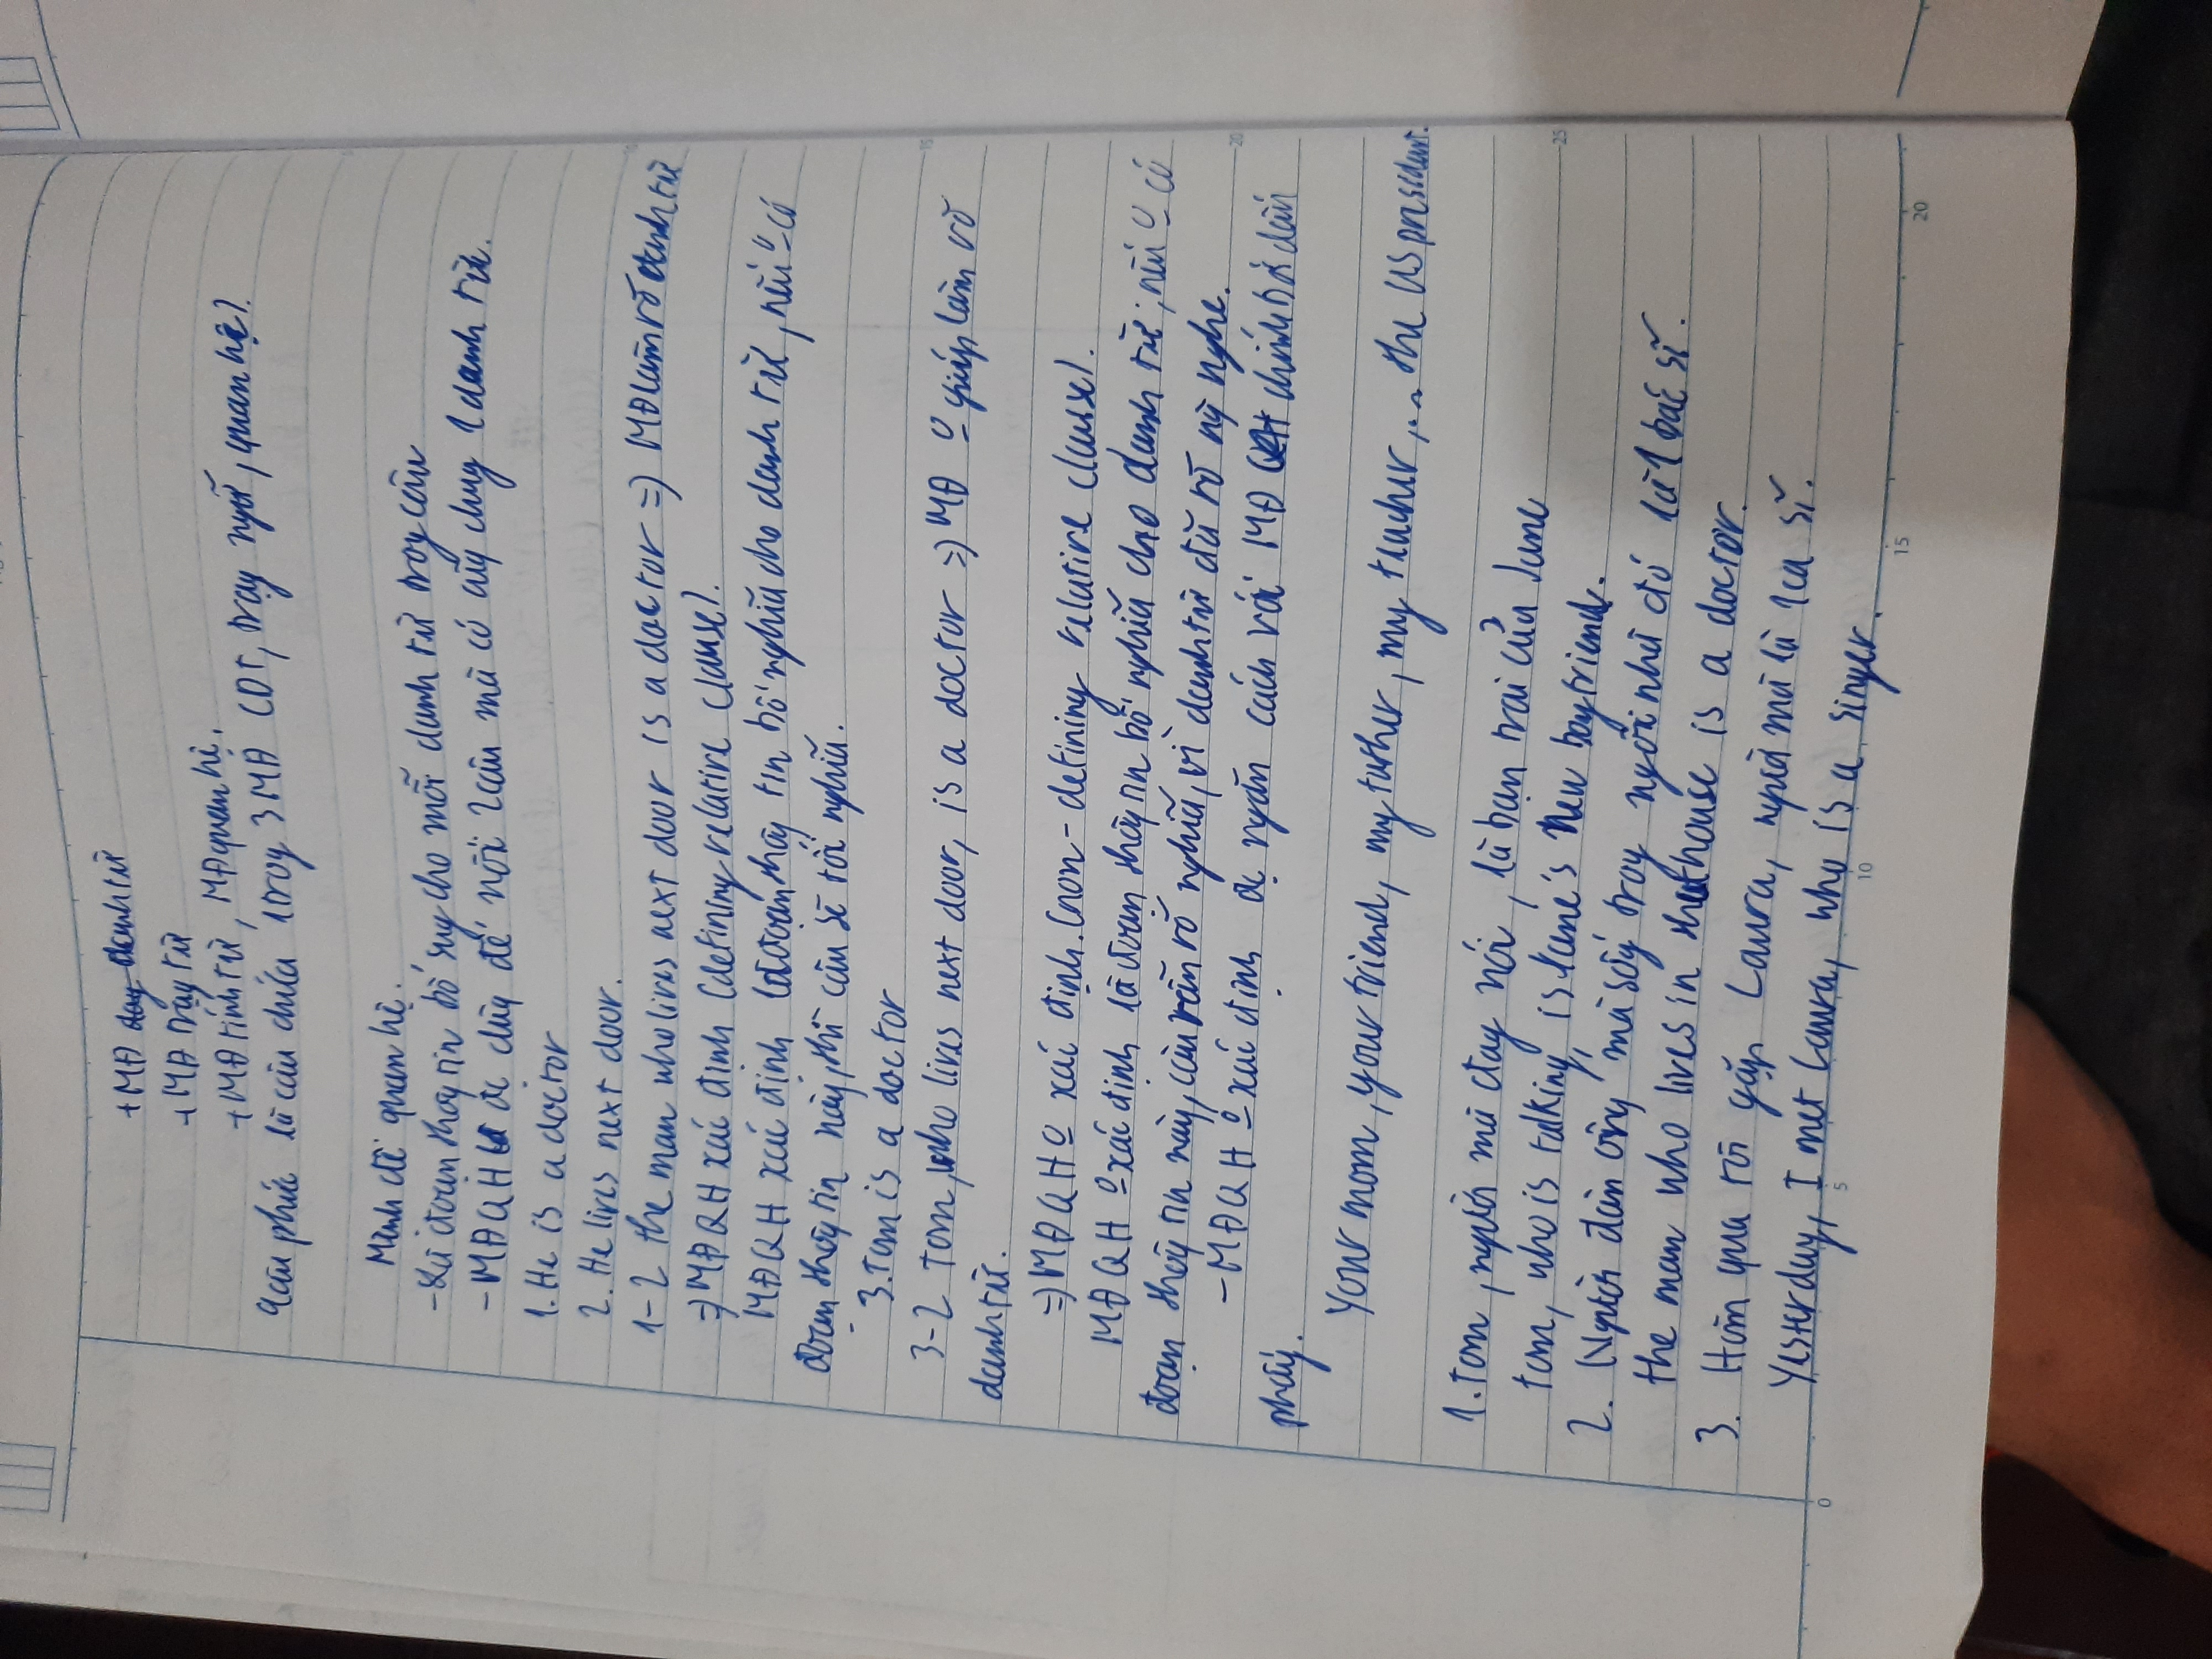 + MĐ danh từ
+ MĐ trạg từ
+ MĐ tính từ, MĐ quan hệ.
câu phức là câu chứa 1 trog 3 MĐ (DT, trạg ngữ, quan hệ).
Mệnh đề quan hệ.
- Là đoạn thôg tin bổ sug cho mỗi danh từ trog câu
- MĐQH đc dùg để nối 2 câu mà có cùg chug 1 danh từ.
1. He is a doctor
2. He lives next door.
1-2 the man who lives next door is a doctor => MĐ làm rõ danh từ
=> MĐQH xác định (defining relative clause).
MĐQH xác định là đoạn thôg tin bổ nghĩa cho danh từ, nếu o có
đoạn thôg tin này, thì câu sẽ tối nghĩa.
3. Tom is a doctor
3-2 Tom, who lives next door, is a doctor => MĐ o giúp làm rõ
danh từ.
=> MĐQH o xác định. (non-defining relative clause).
MĐQH o xác định là đoạn thôg tin bổ nghĩa cho danh từ, nếu o có
đoạn thôg tin này, câu vẫn rõ nghĩa, vì danh từ đã rõ ng nghe.
- MĐQH o xác định đc ngăn cách với MĐ chính bởi dấu
phẩy.
Your mom, your friend, my father, my teacher, ... the US president.
1. Tom, người mà đag nói, là bạn trai của Jane
Tom, who is talking, is Jane's new boyfriend.
2. Người đàn ông mà sốg trog ngôi nhà đó là 1 bác sĩ.
the man who lives in that house is a doctor.
3. Hôm qua tôi gặp Laura, người mà là 1 ca sĩ.
Yesterday, I met Laura, who is a singer.
0 5 10 15 20
15
20
25